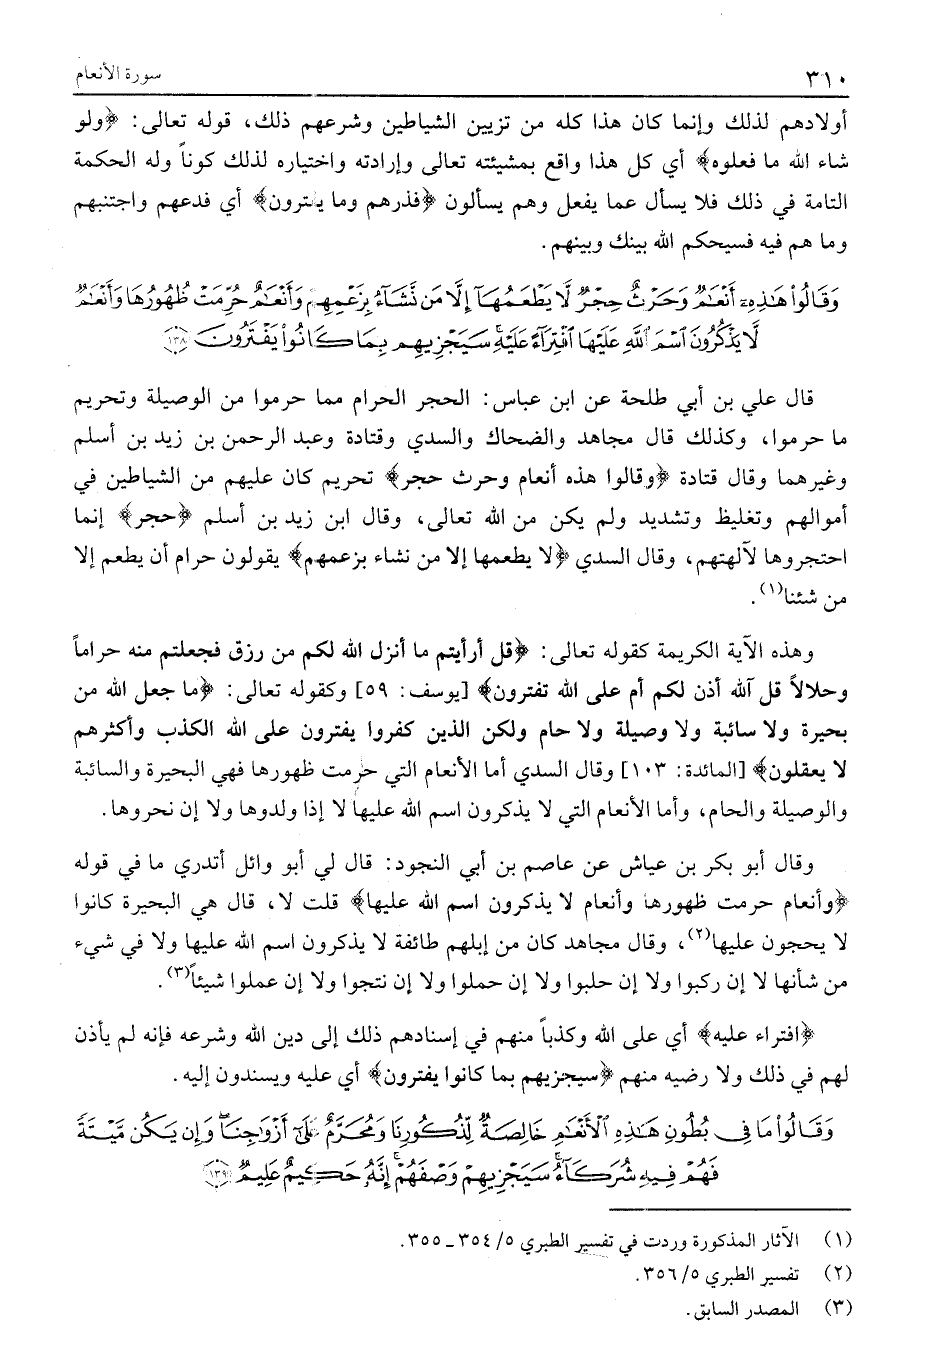 ٣١٠ سورة الأنعام
أولادهم لذلك وإنما كان هذا كله من تزيين الشياطين وشرعهم ذلك، قوله تعالى: ﴿ولو
شاء الله ما فعلوه﴾ أي كل هذا واقع بمشيئته تعالى وإرادته واختياره لذلك كوناً وله الحكمة
التامة في ذلك فلا يسأل عما يفعل وهم يسألون ﴿فذرهم وما يفترون﴾ أي فدعهم واجتنبهم
وما هم فيه فسيحكم الله بينك وبينهم.
وَقَالُوا۟ هَـٰذِهِۦٓ أَنْعَـٰمٌ وَحَرْثٌ حِجْرٌ لَّا يَطْعَمُهَآ إِلَّا مَن نَّشَآءُ بِزَعْمِهِمْ وَأَنْعَـٰمٌ حُرِّمَتْ ظُهُورُهَا وَأَنْعَـٰمٌ
لَّا يَذْكُرُونَ ٱسْمَ ٱللَّهِ عَلَيْهَا ٱفْتِرَآءً عَلَيْهِ ۚ سَيَجْزِيهِم بِمَا كَانُوا۟ يَفْتَرُونَ ﴿١٣٨﴾
قال علي بن أبي طلحة عن ابن عباس: الحجر الحرام مما حرموا من الوصيلة وتحريم
ما حرموا، وكذلك قال مجاهد والضحاك والسدي وقتادة وعبد الرحمن بن زيد بن أسلم
وغيرهما وقال قتادة ﴿وقالوا هذه أنعام وحرث حجر﴾ تحريم كان عليهم من الشياطين في
أموالهم وتغليظ وتشديد ولم يكن من الله تعالى، وقال ابن زيد بن أسلم ﴿حجر﴾ إنما
احتجروها لآلهتهم، وقال السدي ﴿لا يطعمها إلا من نشاء بزعمهم﴾ يقولون حرام أن يطعم إلا
من شئنا(١).
وهذه الآية الكريمة كقوله تعالى: ﴿قل أرأيتم ما أنزل الله لكم من رزق فجعلتم منه حراماً
وحلالاً قل آلله أذن لكم أم على الله تفترون﴾ [يوسف: ٥٩] وكقوله تعالى: ﴿ما جعل الله من
بحيرة ولا سائبة ولا وصيلة ولا حام ولكن الذين كفروا يفترون على الله الكذب وأكثرهم
لا يعقلون﴾ [المائدة: ١٠٣] وقال السدي أما الأنعام التي حرمت ظهورها فهي البحيرة والسائبة
والوصيلة والحام، وأما الأنعام التي لا يذكرون اسم الله عليها لا إذا ولدوها ولا إن نحروها.
وقال أبو بكر بن عياش عن عاصم بن أبي النجود: قال لي أبو وائل أتدري ما في قوله
﴿وأنعام حرمت ظهورها وأنعام لا يذكرون اسم الله عليها﴾ قلت لا، قال هي البحيرة كانوا
لا يحجون عليها(٢)، وقال مجاهد كان من إبلهم طائفة لا يذكرون اسم الله عليها ولا في شيء
من شأنها لا إن ركبوا ولا إن حلبوا ولا إن حملوا ولا إن نتجوا ولا إن عملوا شيئاً(٣).
﴿افتراء عليه﴾ أي على الله وكذباً منهم في إسنادهم ذلك إلى دين الله وشرعه فإنه لم يأذن
لهم في ذلك ولا رضيه منهم ﴿سيجزيهم بما كانوا يفترون﴾ أي عليه ويسندون إليه.
وَقَالُوا۟ مَا فِى بُطُونِ هَـٰذِهِ ٱلْأَنْعَـٰمِ خَالِصَةٌ لِّذُكُورِنَا وَمُحَرَّمٌ عَلَىٰٓ أَزْوَٰجِنَا ۖ وَإِن يَكُن مَّيْتَةً
فَهُمْ فِيهِ شُرَكَآءُ ۚ سَيَجْزِيهِمْ وَصْفَهُمْ ۚ إِنَّهُۥ حَكِيمٌ عَلِيمٌ ﴿١٣٩﴾
(١) الآثار المذكورة وردت في تفسير الطبري ٥/ ٣٥٤ ـ ٣٥٥.
(٢) تفسير الطبري ٥/ ٣٥٦.
(٣) المصدر السابق.